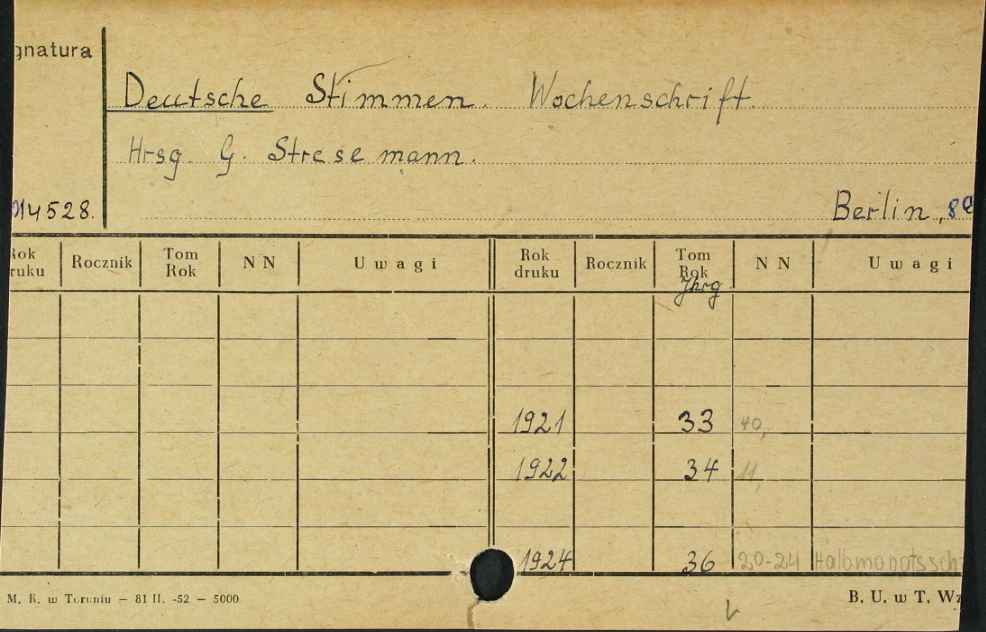 gnatura
Deutsche Stimmen. Wochenschrift.
Hrsg. G. Stresemann.
014528.
Berlin, 8º
Rok druku Rocznik Tom Rok N N Uwagi Rok druku Rocznik Tom Rok N N Uwagi
Jhrg
1921 33 40,
1922 34 11,
1924 36 20-24 Halbmonatssch
M. K. w Toruniu — 81 II. -52 — 5000 B. U. w T. Wz